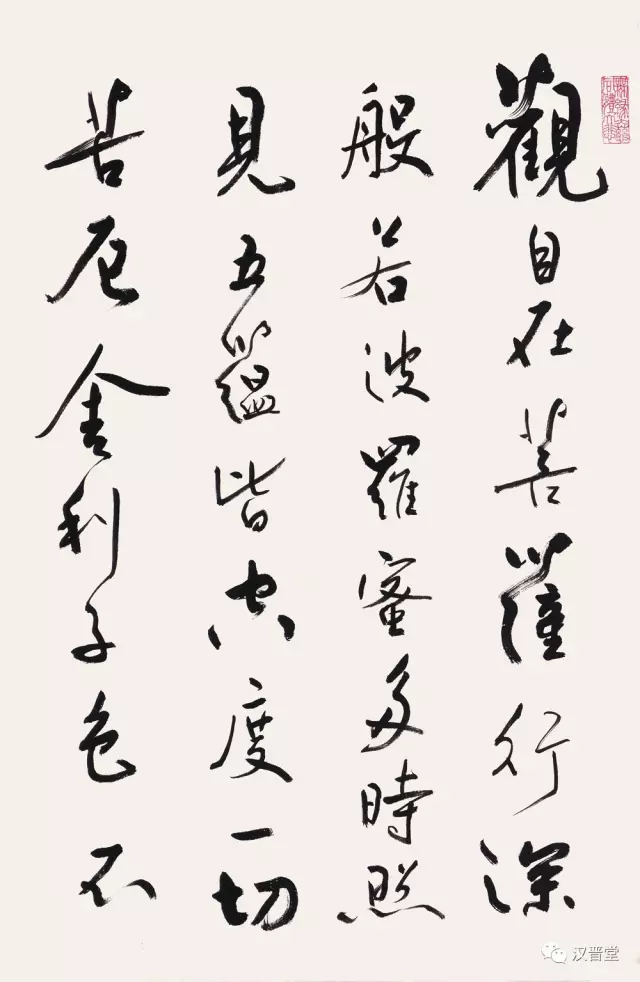 觀自在菩薩行深
般若波羅蜜多時照
見五蘊皆空度一切
苦厄舍利子色不
汉晋堂